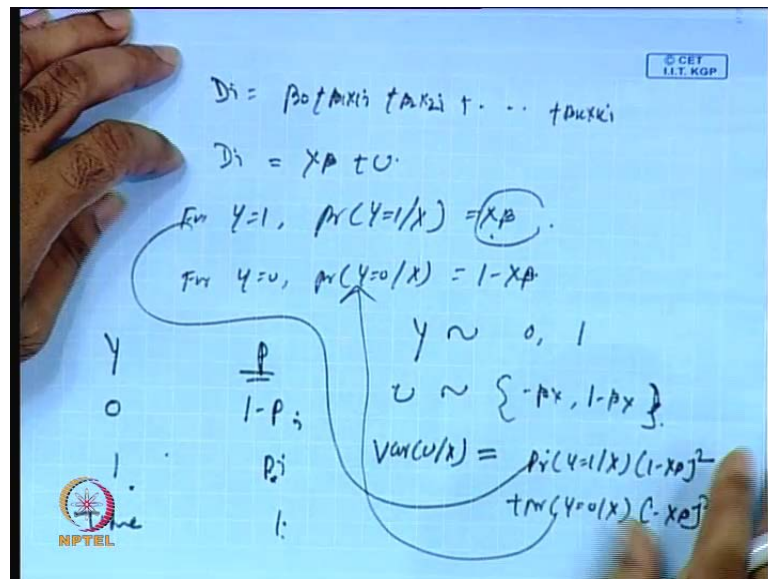 © CET
I.I.T. KGP
Di = β0 + β1x1i + β2x2i + · · · + βkxki
Di = Xβ + U.
For Y=1, pr(Y=1/X) = Xβ.
For Y=0, pr(Y=0/X) = 1-Xβ
Y ~ 0, 1
U ~ {-βx, 1-βx}.
Var(U/X) = Pr(Y=1/X)(1-Xβ)²
+ pr(Y=0/X)(-Xβ)²
Y P
0 1-Pi
1 Pi
1
NPTEL